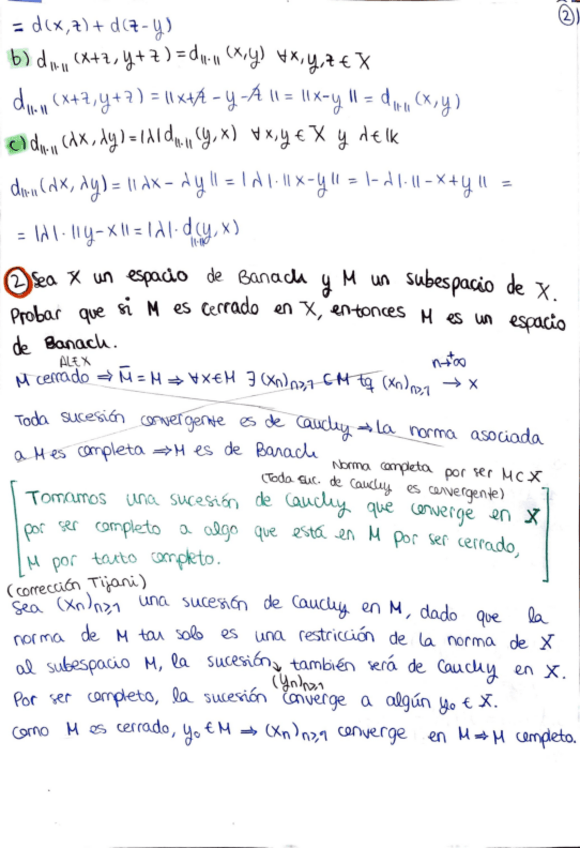 2)
= d(x,z) + d(z-y)
b) d‖·‖ (x+z, y+z) = d‖·‖ (x,y) ∀x,y,z ∈ X
d‖·‖ (x+z, y+z) = ‖x+z - y - z‖ = ‖x-y‖ = d‖·‖ (x,y)
c) d‖·‖ (λx, λy) = |λ| d‖·‖ (y,x) ∀x,y ∈ X y λ ∈ lk
d‖·‖ (λx, λy) = ‖λx - λy‖ = |λ|·‖x-y‖ = |-λ|·‖-x+y‖ =
= |λ|·‖y-x‖ = |λ|· d‖·‖(y,x)
② Sea X un espacio de Banach y M un subespacio de X.
Probar que si M es cerrado en X, entonces M es un espacio
de Banach.
ALEX
M cerrado ⇒ M̄ = M ⇒ ∀x∈M ∃ (xn)n≥1 ⊂ M tq (xn)n≥1 → x
n→+∞
Toda sucesión convergente es de Cauchy ⇒ La norma asociada
a M es completa ⇒ M es de Banach
Norma completa por ser M ⊂ X
(Toda suc. de Cauchy es convergente)
Tomamos una sucesión de Cauchy que converge en X
por ser completo a algo que está en M por ser cerrado,
M por tanto completo.
(corrección Tijani)
Sea (xn)n≥1 una sucesión de Cauchy en M, dado que la
norma de M tan solo es una restricción de la norma de X
al subespacio M, la sucesión también será de Cauchy en X.
(yn)n≥1
Por ser completo, la sucesión converge a algún y₀ ∈ X.
Como M es cerrado, y₀ ∈ M ⇒ (xn)n≥1 converge en M ⇒ M completo.